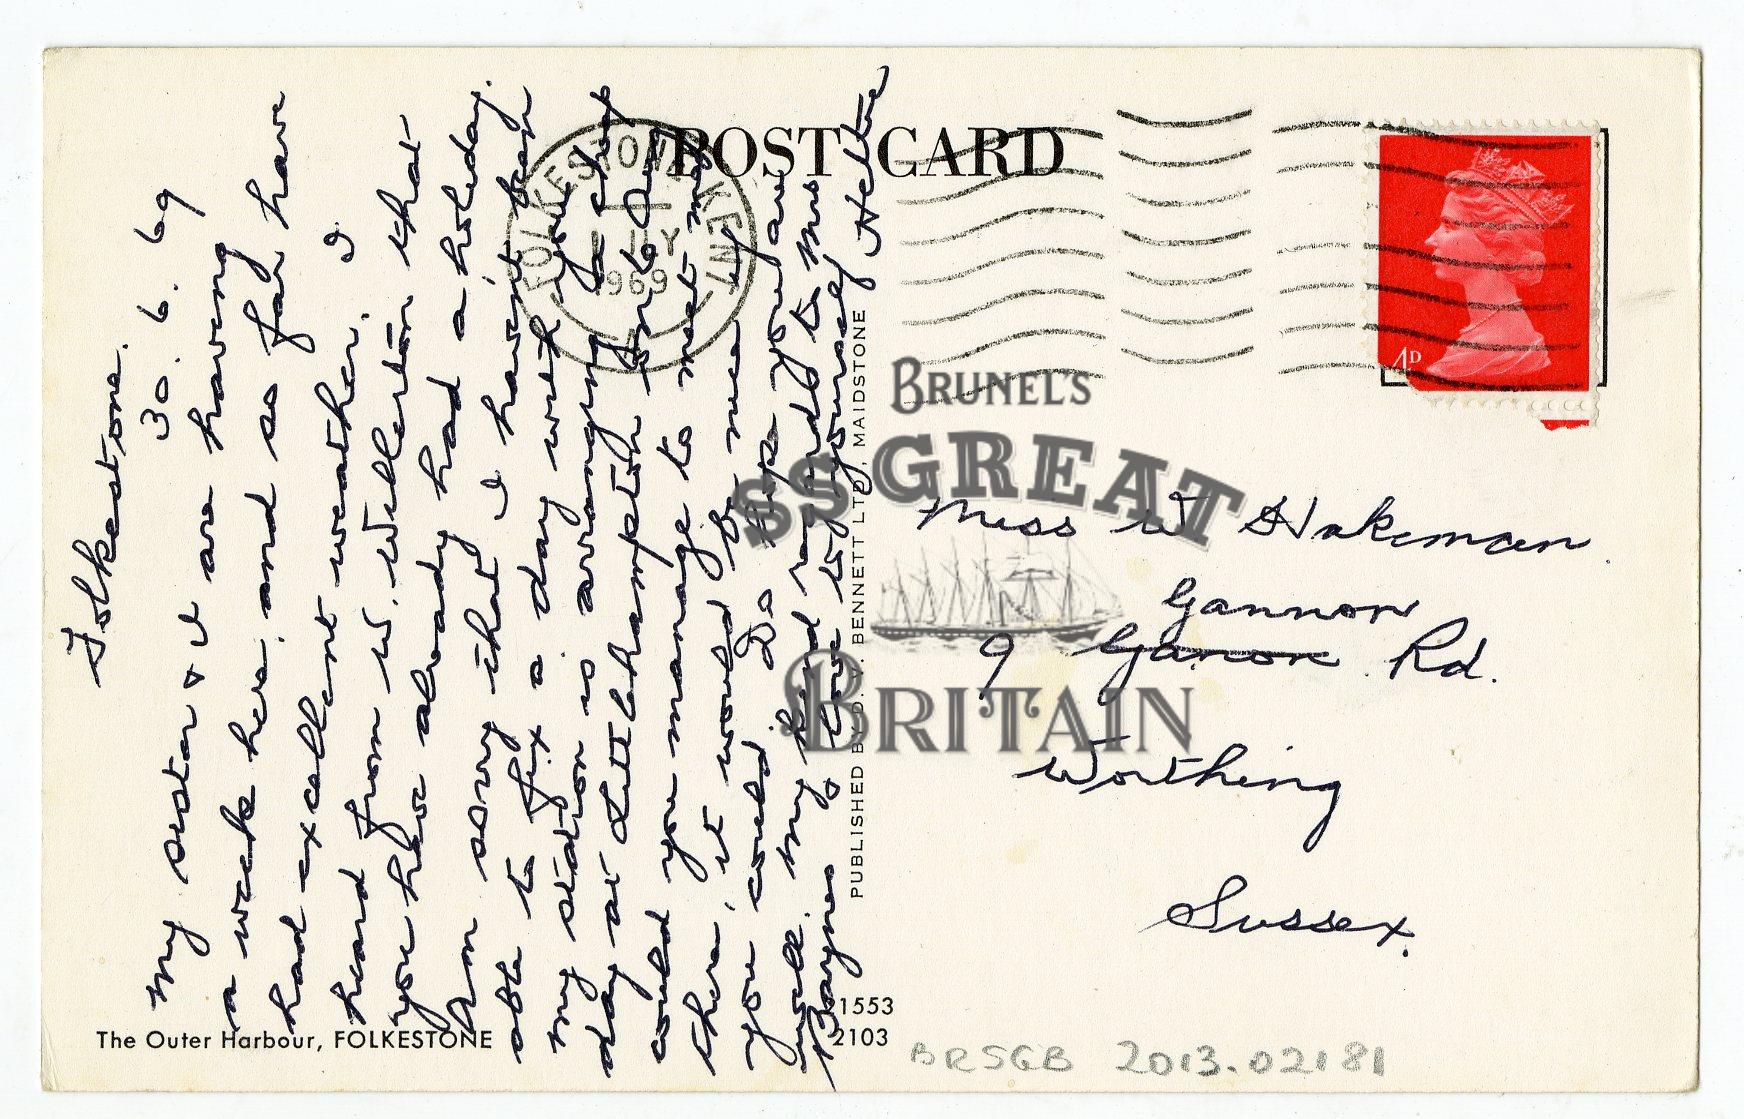 POST CARD
FOLKESTONE KENT
1 JLY
1969
4D
Folkestone.
30.6.69
My sister & I are having
a week here, and so far have
had excellent weather. I
heard from W. Willerton that
you have already had a holiday.
Am sorry that I haven't been
able to fix a day with you
my station is arranging a cheap
day at Littlehampton on to day
could you manage to meet me
there, it would be nice if
you could. Do hope you are
well. My kind regards to Mrs
Baynes & love to yourself
PUBLISHED BY D. V. BENNETT LTD, MAIDSTONE
Miss W Hakeman.
Gannon
9 Ganon Rd.
Worthing
Sussex.
BRUNEL'S
SS GREAT
BRITAIN
The Outer Harbour, FOLKESTONE
21553
2103
BRSGB 2013.02181